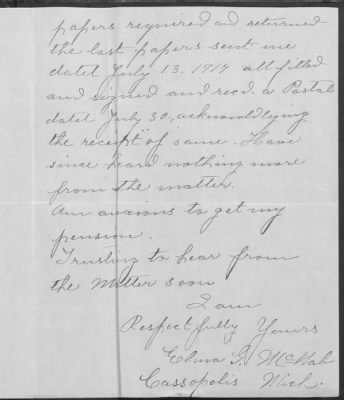 papers required and returned
the last papers sent me
datet July 13. 1917 all filled
and signed and recd. a Postal
datet July 30, acknowldlying
the receipt of same. Have
since heard nothing more
from the matter.
Am anxious to get my
pension.
Trusting to hear from
the Matter soon
I am
Respectfully Yours
Elma G. McNab
Cassopolis Mich.